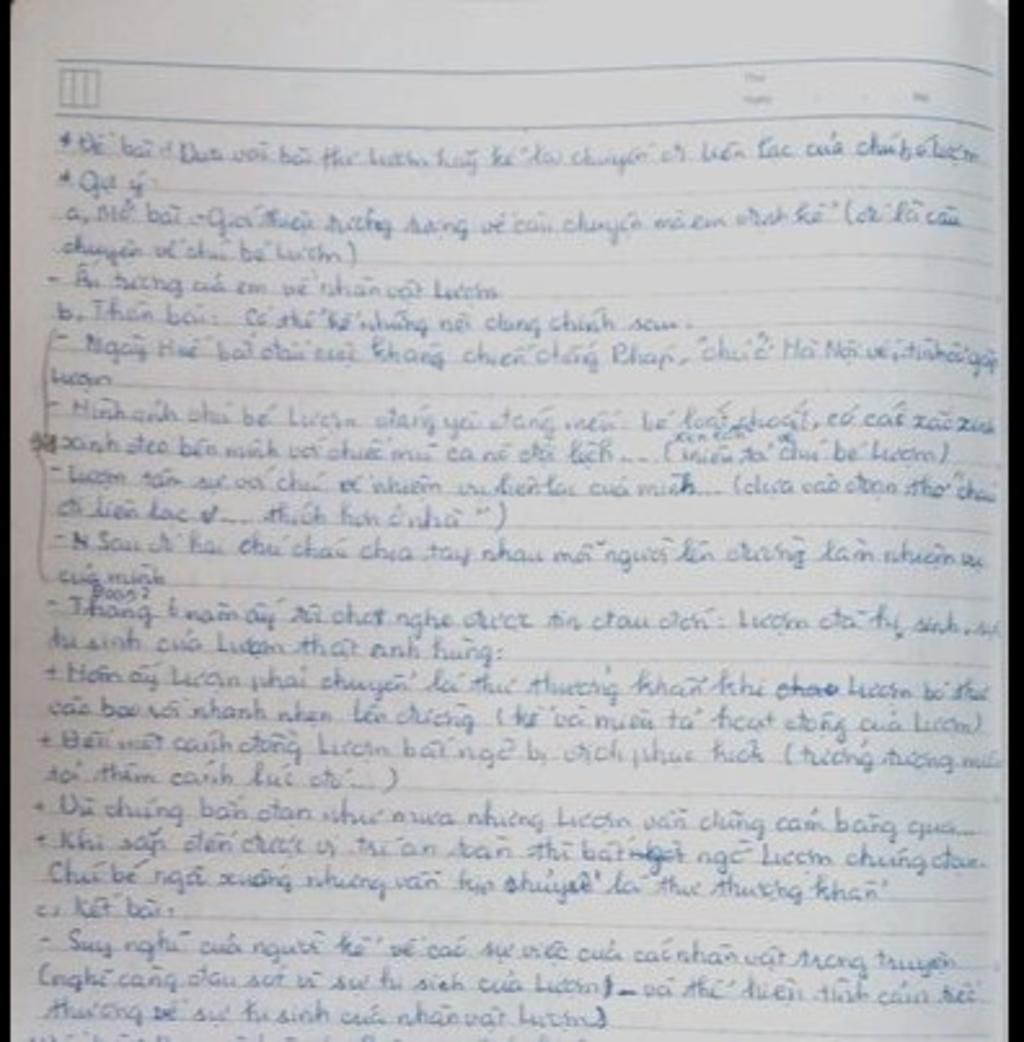 * Đề bài: Dựa vào bài thơ Lượm, hãy kể lại chuyến đi liên lạc của chú bé Lượm
* Gợi ý:
a, Mở bài: - Giới thiệu về câu chuyện mà em định kể (đó là câu
chuyện về chú bé Lượm)
- Ấn tượng của em về nhân vật Lượm
b, Thân bài: Có thể kể những nội dung chính sau:
- Ngày Huế bắt đầu cuộc kháng chiến chống Pháp, chú ở Hà Nội về, tình cờ gặp
Lượm
- Hình ảnh chú bé Lượm đáng yêu đáng mến: bé loắt choắt, có cái xắc xinh
xinh đeo bên mình với chiếc mũ ca nô đội lệch... (miêu tả chú bé Lượm)
- Lượm tâm sự với chú về nhiệm vụ liên lạc của mình... (dựa vào đoạn thơ "cháu
đi liên lạc ... thích hơn ở nhà")
- Sau đó hai chú cháu chia tay nhau mỗi người lên đường làm nhiệm vụ
của mình
- Tháng 6 năm ấy tôi chợt nghe được tin đau đớn: Lượm đã hy sinh, sự
hi sinh của Lượm thật anh hùng:
+ Hôm ấy Lượm phải chuyển lá thư thượng khẩn khi Lượm bỏ thư
vào bao rồi nhanh nhẹn lên đường (kể và miêu tả hoạt động của Lượm)
+ Đến một cánh đồng Lượm bất ngờ bị địch phục kích (tưởng tượng
thêm cảnh lúc đó...)
+ Dù chúng bắn đạn như mưa nhưng Lượm vẫn dũng cảm băng qua...
+ Khi sắp đến được vị trí an toàn thì bất ngờ Lượm trúng đạn.
Chú bé ngã xuống nhưng vẫn kịp chuyển lá thư thượng khẩn
c, Kết bài:
- Suy nghĩ của người kể về các sự việc của các nhân vật trong truyện
(nghĩ càng đau xót vì sự hi sinh của Lượm) - và thể hiện tình cảm tiếc
thương về sự hi sinh của nhân vật Lượm)